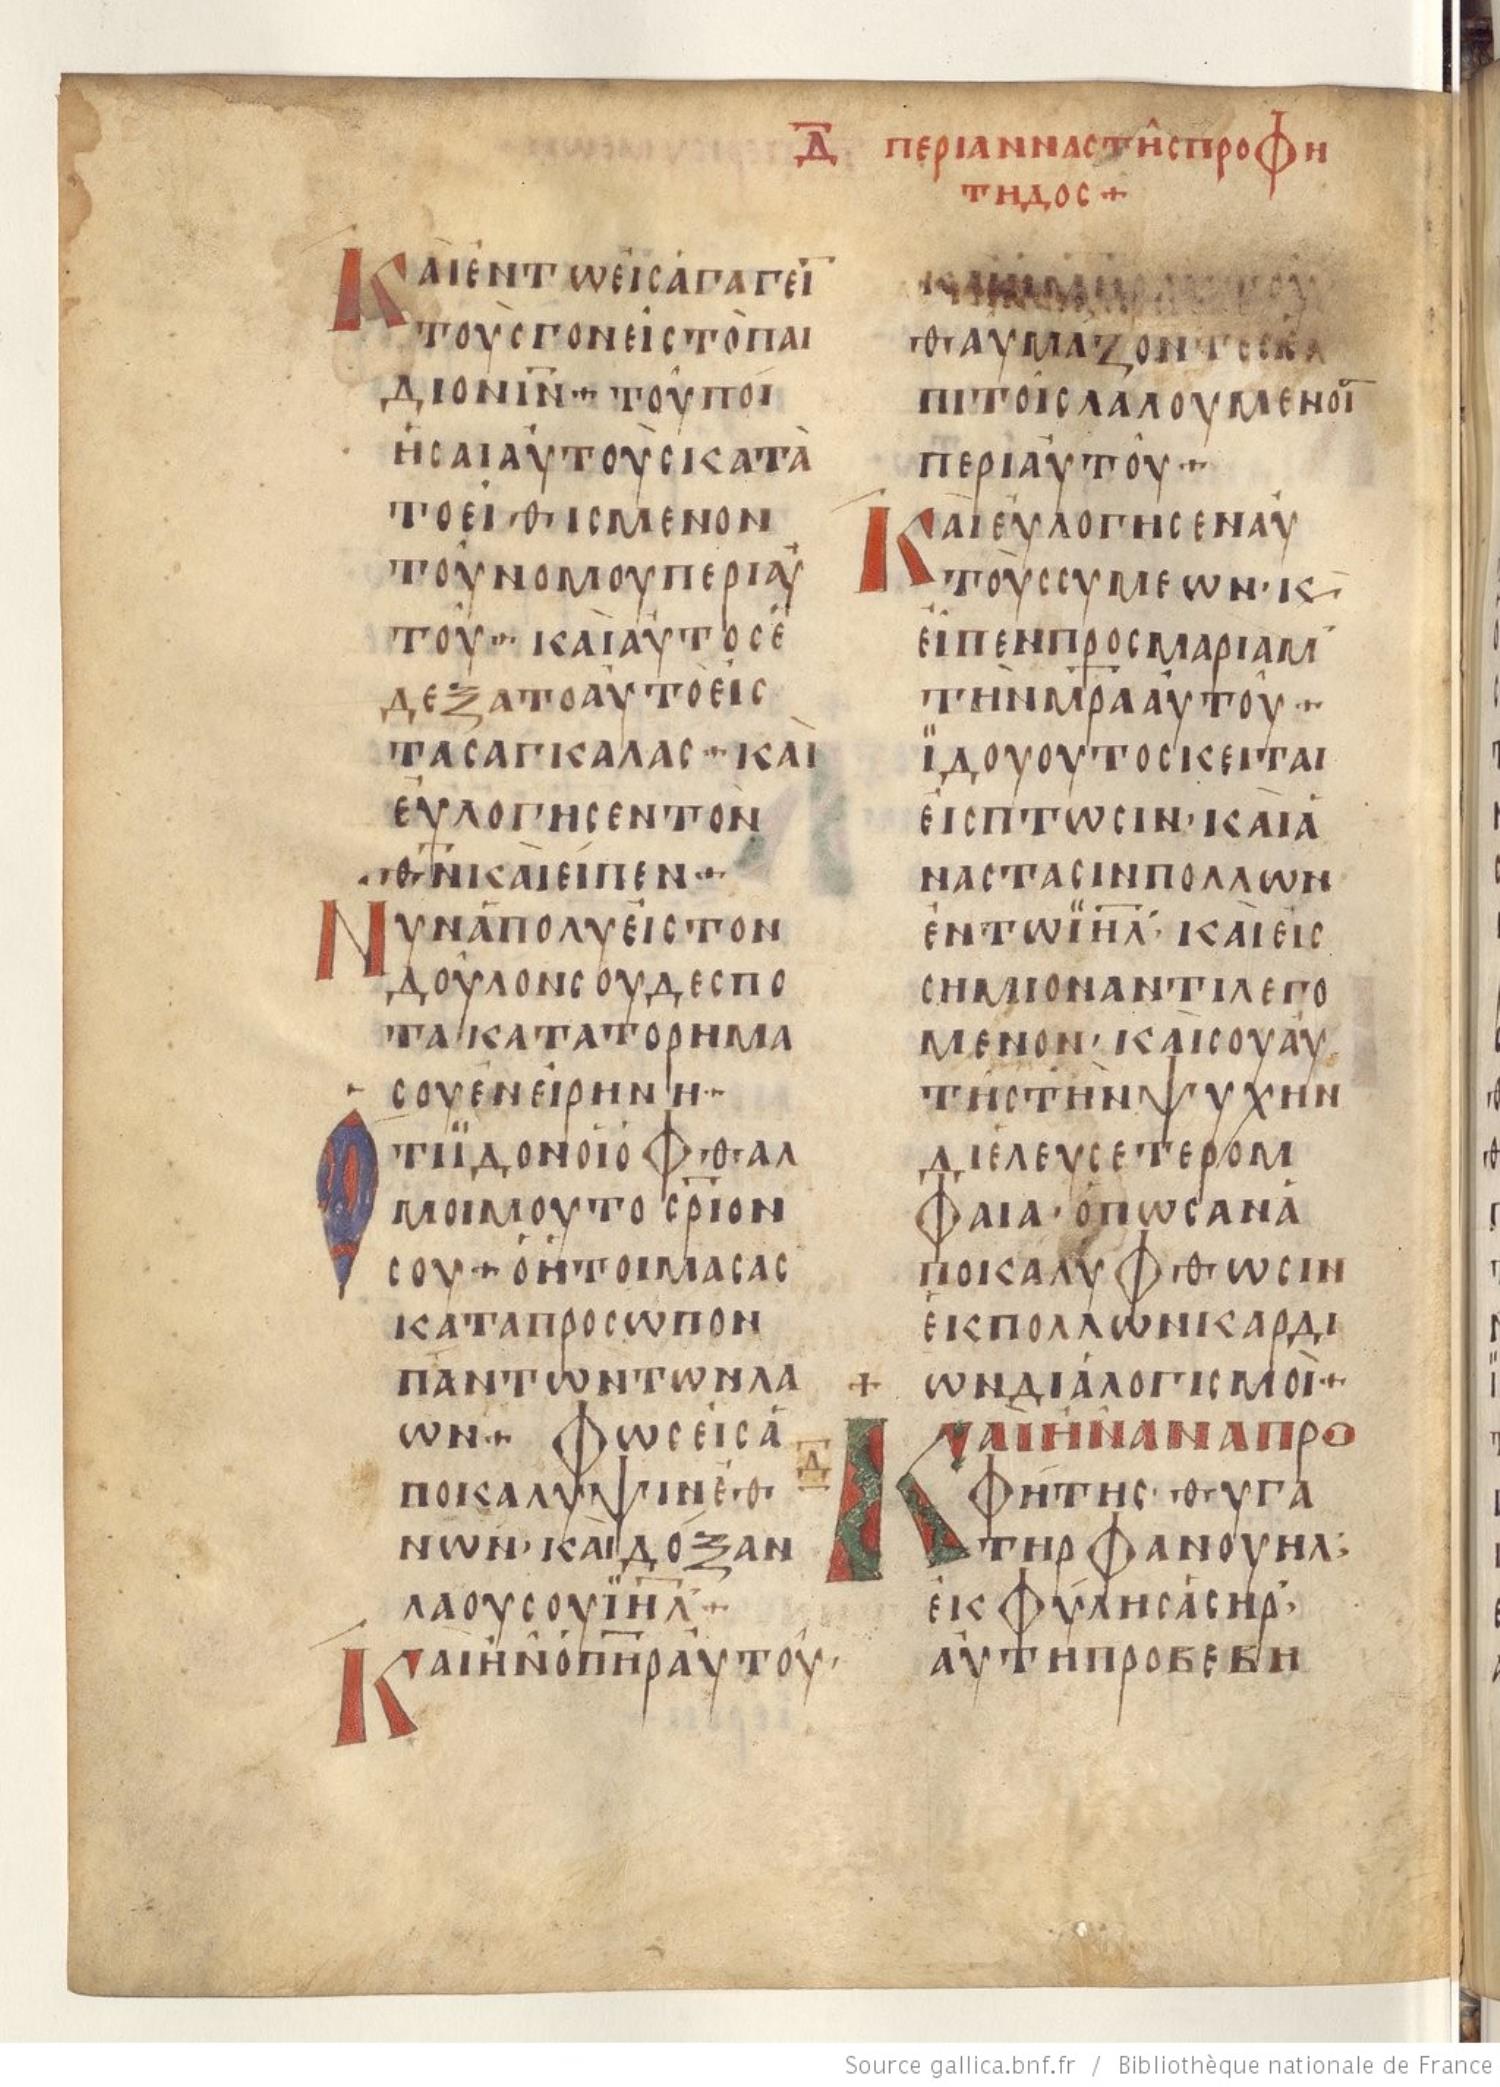 Δ ΠΕΡΙΑΝΝΑСΤΗ̂СΠΡΟΦΗ
ΤΗΔΟС+
ΚΑῚἘΝΤΩΕἸСΑΓΑΓΕΙ̅
ΤΟῪСΓΟΝΕΙ̂СΤῸΠΑΙ
ΔΙΟΝΙ̅Ν̅+ΤΟΥ͂ΠΟΙ
Η͂СΑΙΑΥ̓ΤΟῪСΚΑΤᾺ
ΤΟΕἸΘΙСΜΕΝΟΝ
ΤΟΥ͂ΝΟΜΟΥΠΕΡΙΑΥ̓
ΤΟΥ+ΚΑῚΑΥ̓ΤΟСἘ
ΔΕΞΑΤΟΑΥ̓ΤΟΕἸС
ΤΑСΑΓΚΑΛΑС+ΚΑῚ
ΕΥ̓ΛΟΓΗСΕΝΤΟΝ
Θ̅Ν̅ΚΑῚΕἸΠΕΝ+
ΝΥΝἈΠΟΛΥΕΙСΤΟΝ
ΔΟΥ͂ΛΟΝСΟΥΔΕСΠΟ
ΤΑ·ΚΑΤΑΤΟΡΗΜΑ
СΟΥἘΝΕἸΡΗΝΗ+
ΟΤΙΪΔΟΝΟΙὈΦΘΑΛ
ΜΟΙΜΟΥΤΟС̅Ρ̅ΙΟΝ
СΟΥ+ὉΗΤΟΙΜΑСΑС
ΚΑΤΑΠΡΟСΩΠΟΝ
ΠΑΝΤΩΝΤΩΝΛΑ
ΩΝ+ ΦΩСΕἸСἈ
ΠΟΚΑΛΥΨΙΝἘΘ
ΝΩΝ·ΚΑῚΔΟΞΑΝ
ΛΑΟΥСΟΥΪ̅Η̅Λ̅+
ΚΑΙἨΝὉΠ̅Η̅Ρ̅ΑΥ̓ΤΟΥ͂·
ΘΑΥΜΑΖΟΝΤΕСΕ
ΠΙΤΟΙ͂СΛΑΛΟΥΜΕΝΟΙ̅
ΠΕΡΙΑΥ̓ΤΟΥ͂+
ΚΑῚΕΥ̓ΛΟΓΗСΕΝΑΥ̓
ΤΟῪССΥΜΕΩΝ·Κ
ΕἸΠΕΝΠΡΟСΜΑΡΙΑΜ
ΤῊΝΜ̅Ρ̅Α̅ΑΥ̓ΤΟΥ͂+
ΪΔΟΥΟΥΤΟСΚΕΙΤΑΙ
ΕἸСΠΤΩСΙΝ·ΚΑῚἈ
ΝΑСΤΑСΙΝΠΟΛΛΩΝ
ἘΝΤΩΪ̅Η̅Λ̅·ΚΑῚΕἸС
СΗΜΙΟΝΑΝΤΙΛΕΓΟ
ΜΕΝΟΝ·ΚΑῚСΟΥΑΥ̓
ΤΗ͂СΤῊΝΨΥΧΗΝ
ΔΙἘΛΕΥСΕΤΕΡΟΜ
ΦΑΙΑ·ὉΠΩСΑΝἈ
ΠΟΚΑΛΥΦΘΩСΙΝ
ἘΚΠΟΛΛΩΝΚΑΡΔΙ
+ ΩΝΔΙΑΛΟΓΙСΜΟΙ+
Δ ΚΑῚἨΝΑΝΑΠΡΟ
ΦΗ͂ΤΗС·ΘΥΓΑ
ΤΗΡΦΑΝΟΥΗΛ·
ἘΚΦΥΛΗСἈСΗΡ·
ΑΥ̓ΤΗΠΡΟΒΕΒΗ
Source gallica.bnf.fr / Bibliothèque nationale de France